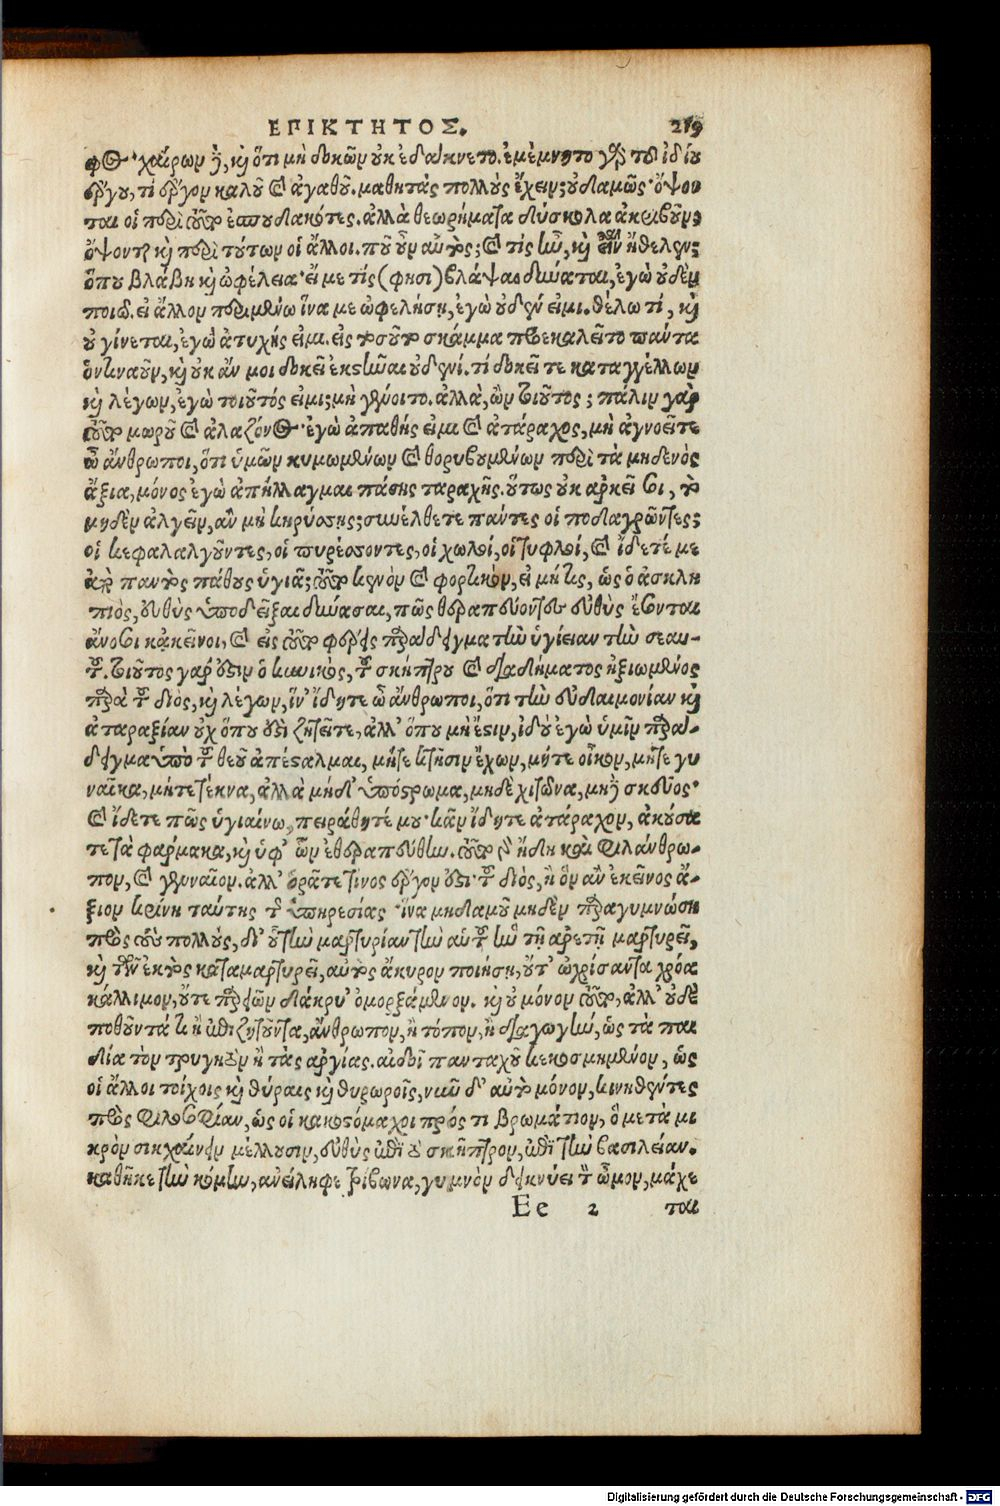 ΕΠΙΚΤΗΤΟΣ. 219
φος. χαίρων δὲ, καὶ ὅτι μὴ δοκῶν οὐκ ἐδάκνετο. ἐμέμνητο γὰρ τοῦ ἰδίου
ἔργου, τί ἔργον καλοῦ καὶ ἀγαθοῦ. μαθητὰς πολλοὺς ἔχειν; οὐδαμῶς. ὄψον
ται οἱ περὶ τοῦτο ἐσπουδακότες. ἀλλὰ θεωρήματα δύσκολα ἀκριβοῦν;
ὄψονται καὶ περὶ τούτων οἱ ἄλλοι. ποῦ οὖν αὐτὸς; καὶ τίς ἦν, καὶ εἶναι ἤθελεν;
ὅπου βλάβη καὶ ὠφέλεια. εἴ με τίς (φησὶ) βλάψαι δύναται, ἐγὼ οὐδὲν
ποιῶ. εἰ ἄλλον περιμένω ἵνα με ὠφελήσῃ, ἐγὼ οὐδέν εἰμι. θέλω τί, καὶ
οὐ γίνεται, ἐγὼ ἀτυχής εἰμι. εἰς τοσοῦτο σκάμμα προεκαλεῖτο πάντα
ὁντιναοῦν, καὶ οὐκ ἄν μοι δοκεῖ ἐκστῆναι οὐδενί. τί δοκεῖτε καταγγέλλων
καὶ λέγων, ἐγὼ τοιοῦτός εἰμι; μὴ γένοιτο. ἀλλὰ, ὢν τοιοῦτος; πάλιν γὰρ
τοῦτο μωροῦ καὶ ἀλαζόνος. ἐγὼ ἀπαθής εἰμι καὶ ἀτάραχος, μὴ ἀγνοεῖτε
ὦ ἄνθρωποι, ὅτι ὑμῶν κυμωμένων καὶ θορυβουμένων περὶ τὰ μηδενὸς
ἄξια, μόνος ἐγὼ ἀπήλλαγμαι πάσης ταραχῆς. οὕτως οὐκ ἀρκεῖ σοι, τὸ
μηδὲν ἀλγεῖν, ἂν μὴ κηρύσσῃς; συνέλθετε πάντες οἱ ποδαγρῶντες;
οἱ κεφαλαλγοῦντες, οἱ πυρέσσοντες, οἱ χωλοί, οἱ τυφλοί, καὶ ἴδετέ με
ἀπὸ παντὸς πάθους ὑγιᾶ; τοῦτο κενὸν καὶ φορτικὸν, εἰ μή τις, ὡς ὁ ἀσκλη
πιὸς, εὐθὺς ὑποδεῖξαι δύνασαι, πῶς θεραπεύοντες εὐθὺς ἔσονται
ἄνοσοι κἀκεῖνοι, καὶ εἰς τοῦτο φέρεις παράδειγμα τὴν ὑγίειαν τὴν σεαυ-
τοῦ. τοιοῦτος γάρ ἐστιν ὁ κυνικὸς, τοῦ σκήπτρου καὶ διαδήματος ἠξιωμένος
παρὰ τοῦ διὸς, καὶ λέγων, ἵν' ἴδητε ὦ ἄνθρωποι, ὅτι τὴν εὐδαιμονίαν καὶ
ἀταραξίαν οὐχ ὅπου ἐστὶ ζητεῖτε, ἀλλ' ὅπου μὴ ἔστιν, ἰδοὺ ἐγὼ ὑμῖν παρά-
δειγμα ὑπὸ τοῦ θεοῦ ἀπέσταλμαι, μήτε κτῆσιν ἔχων, μήτε οἶκον, μήτε γυ
ναῖκα, μήτε τέκνα, ἀλλὰ μήδ' ὑπόστρωμα, μηδὲ χιτῶνα, μὴ δὲ σκεῦος.
καὶ ἴδετε πῶς ὑγιαίνω, πειράθητέ μου. κἂν ἴδητε ἀτάραχον, ἀκούσα
τε τὰ φάρμακα, καὶ ὑφ' ὧν ἐθεραπεύθην. τοῦτο γὰρ ἤδη καὶ φιλάνθρω-
πον, καὶ γενναῖον. ἀλλ' ὁρᾶτε τίνος ἔργον ἐστὶ. τοῦ διὸς, ἢ ὃν ἂν ἐκεῖνος ἄ-
ξιον κρίνῃ ταύτης τῆς ὑπηρεσίας. ἵνα μηδαμοῦ μηδὲν παραγυμνώσῃ
πρὸς τοὺς πολλοὺς, δι' οὗ τὴν μαρτυρίαν τὴν αὑτοῦ ἣν τῇ ἀρετῇ μαρτυρεῖ,
καὶ τῶν ἐκτὸς καταμαρτυρεῖ, αὐτὸς ἄκυρον ποιήσῃ, οὔτ' ὠχρίσαντα χρόα
κάλλιμον, οὔτε παρειῶν δάκρυ' ὀμορξάμενον. καὶ οὐ μόνον τοῦτο, ἀλλ' οὐδὲ
ποθοῦντά τι ἢ ἐπιζητοῦντα, ἄνθρωπον, ἢ τόπον, ἢ διαγωγὴν, ὡς τὰ παι
δία τὸν τρυγητὸν ἢ τὰς ἀργίας. αἰδοῖ πανταχοῦ κεκοσμημένον, ὡς
οἱ ἄλλοι τοίχοις καὶ θύραις καὶ θυρωροῖς, νῦν δ' αὐτὸ μόνον, κινηθέντες
πρὸς φιλοσοφίαν, ὡς οἱ κακοστόμαχοι πρός τι βρωμάτιον, ὃ μετὰ μι
κρὸν σικχαίνειν μέλλουσιν, εὐθὺς ἐπὶ τὸ σκῆπτρον, ἐπὶ τὴν βασιλείαν.
καθῆκε τὴν κόμην, ἀνείληφε τρίβωνα, γυμνὸν δεικνύει τὸν ὦμον, μάχε
Ee 2 ται
Digitalisierung gefördert durch die Deutsche Forschungsgemeinschaft - DFG